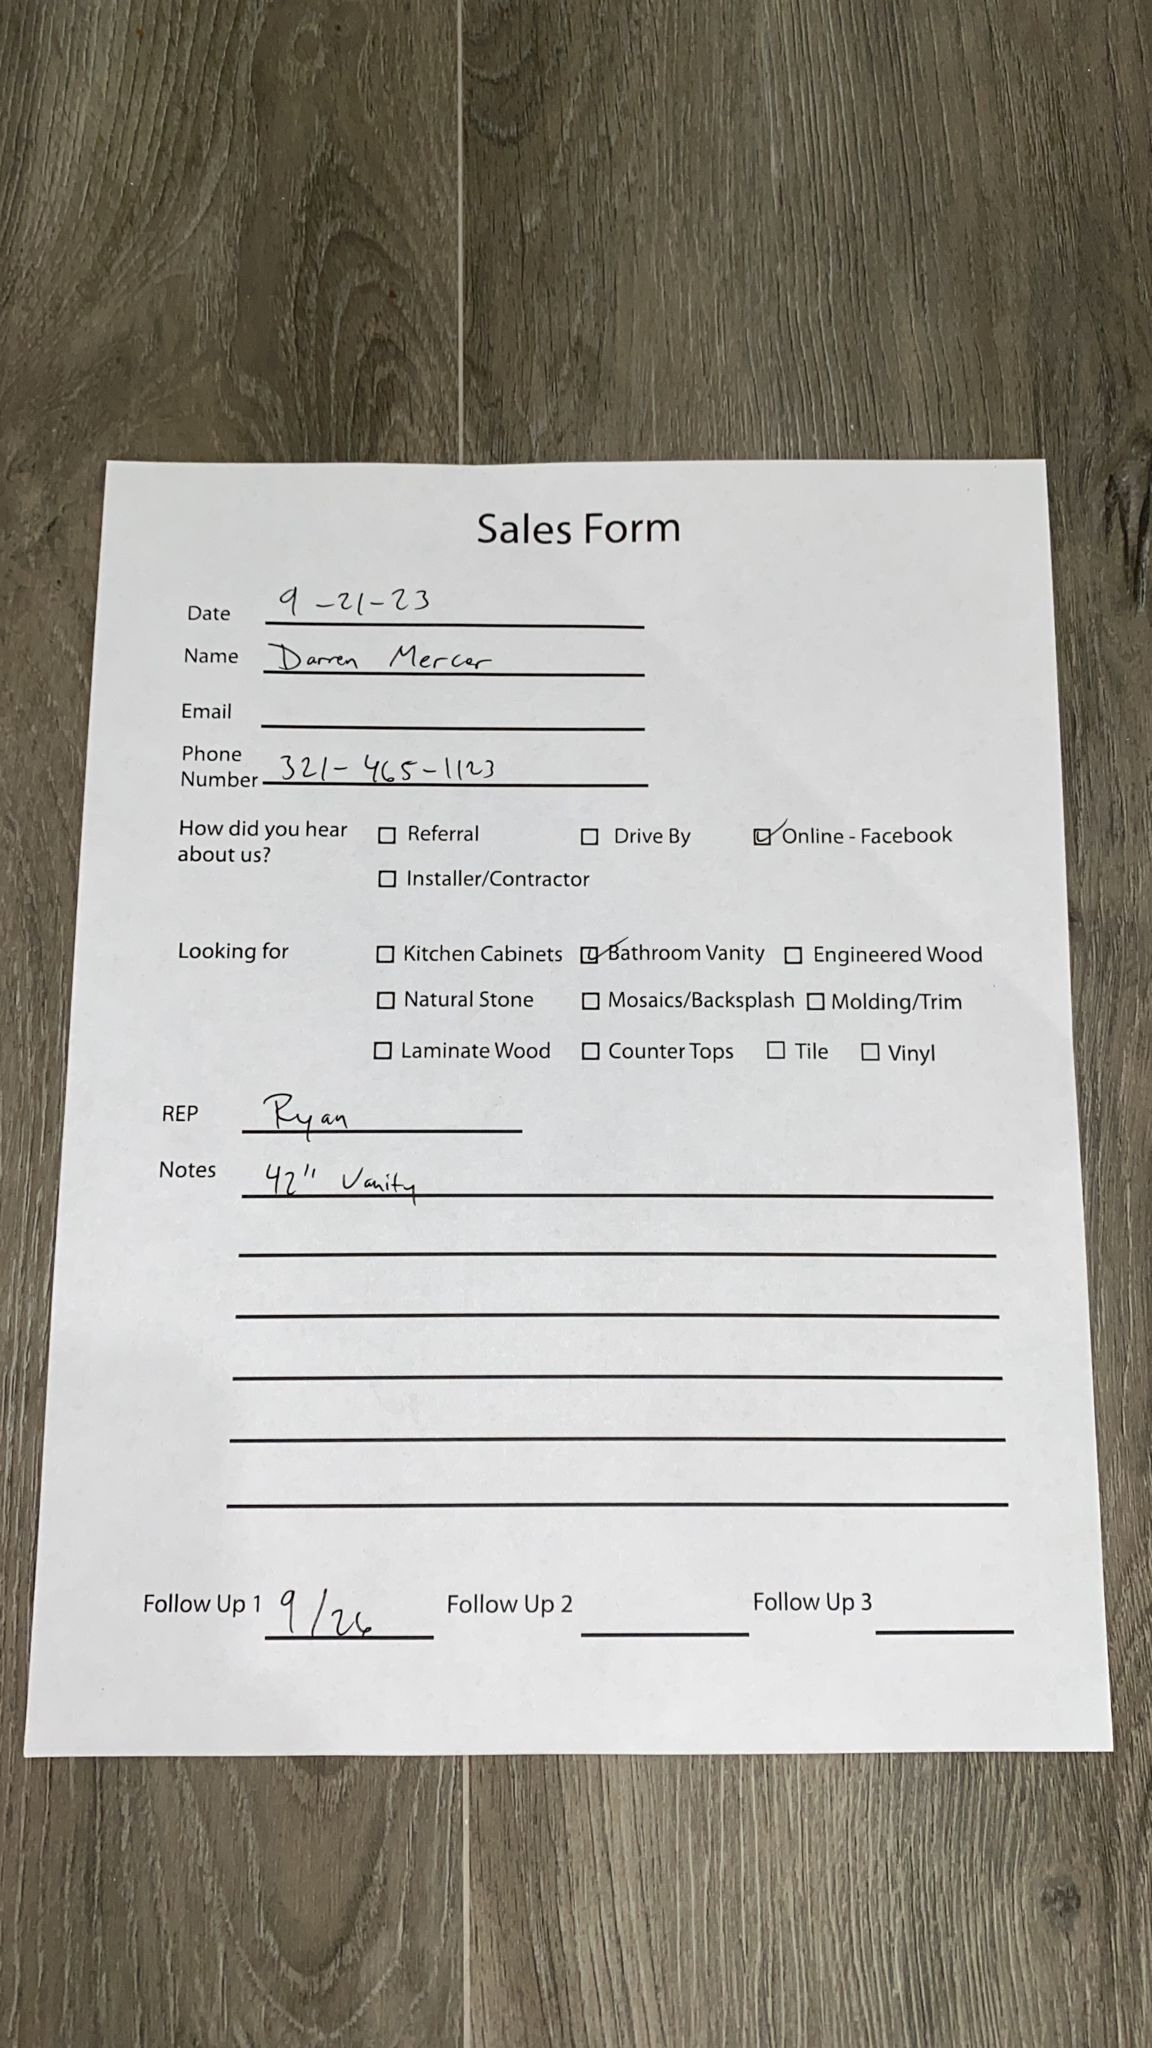 Sales Form
Date 9-21-23
Name Darren Mercer
Email
Phone
Number 321-465-1123
How did you hear
about us?
☐ Referral ☐ Drive By ☑ Online - Facebook
☐ Installer/Contractor
Looking for ☐ Kitchen Cabinets ☑ Bathroom Vanity ☐ Engineered Wood
☐ Natural Stone ☐ Mosaics/Backsplash ☐ Molding/Trim
☐ Laminate Wood ☐ Counter Tops ☐ Tile ☐ Vinyl
REP Ryan
Notes 42" Vanity
Follow Up 1 9/26 Follow Up 2 Follow Up 3